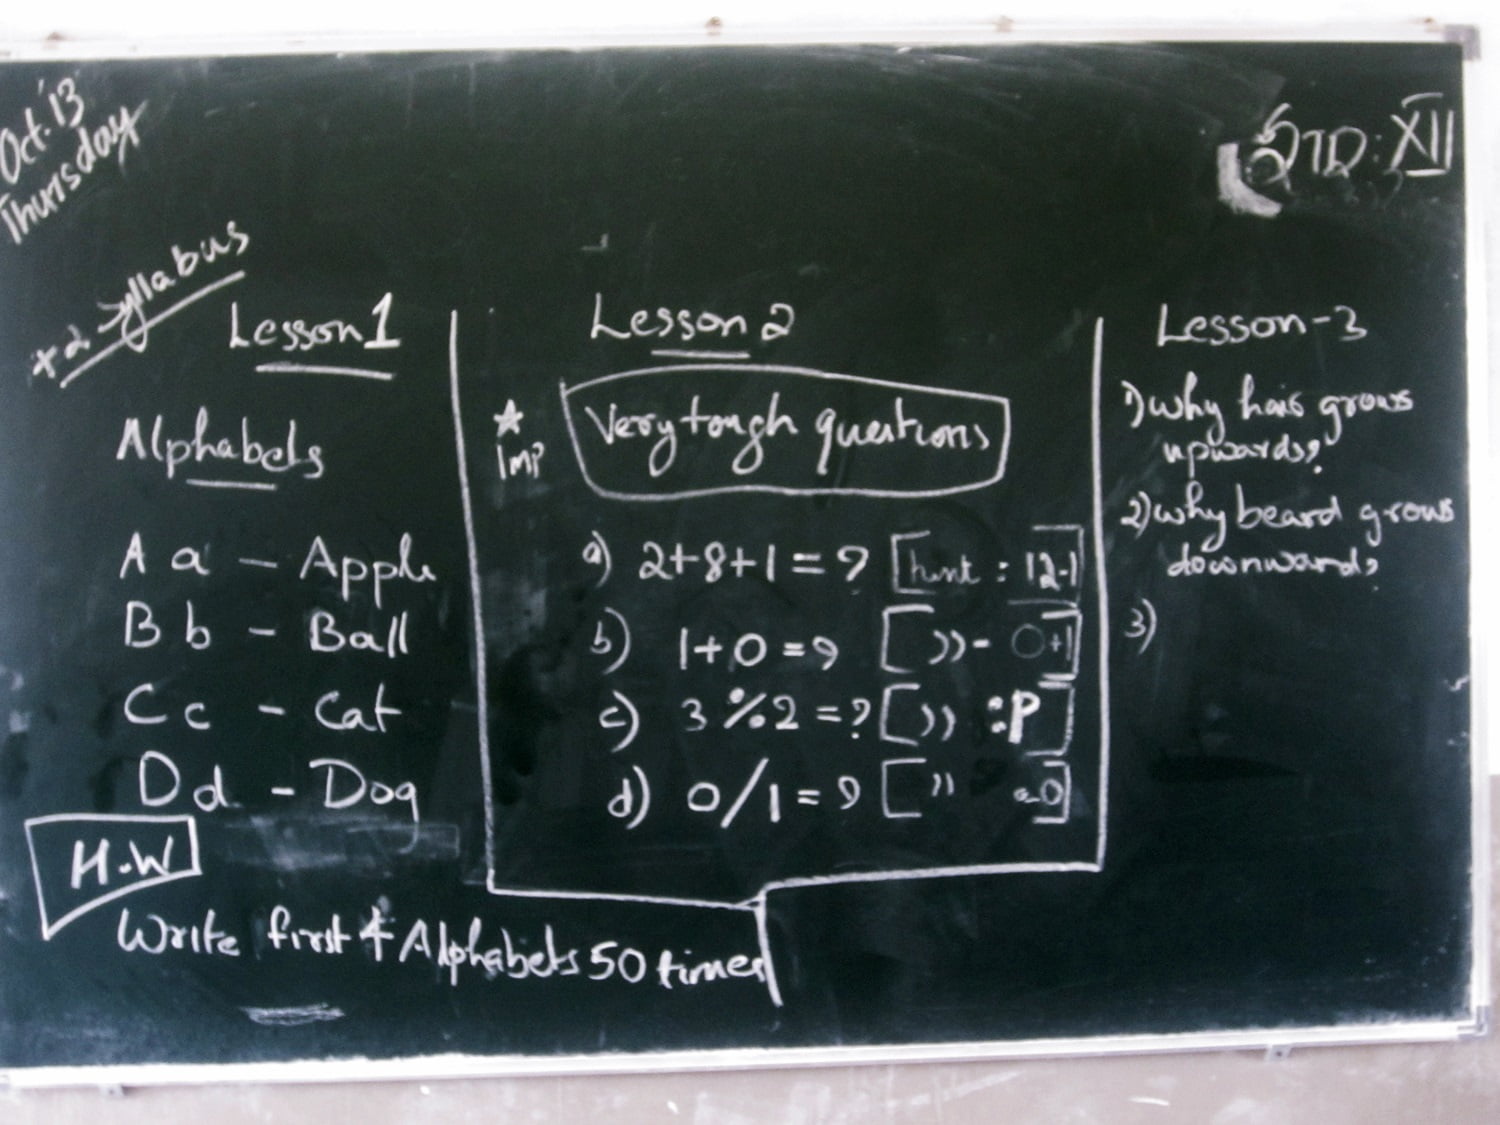 Oct. '13
Thursday
STD: XII
+2 Syllabus
Lesson 1
Alphabets
A a - Apple
B b - Ball
C c - Cat
D d - Dog
H.W
Write first 4 Alphabets 50 times
Lesson 2
★ Imp
Very tough questions
a) 2+8+1=? [hint : 12-1]
b) 1+0=? [ ,, - 0+1]
c) 3 % 2 =? [ ,, :P ]
d) 0/1=? [ ,, =0]
Lesson-3
1) why hair grows
upwards?
2) why beard grows
downward?
3)